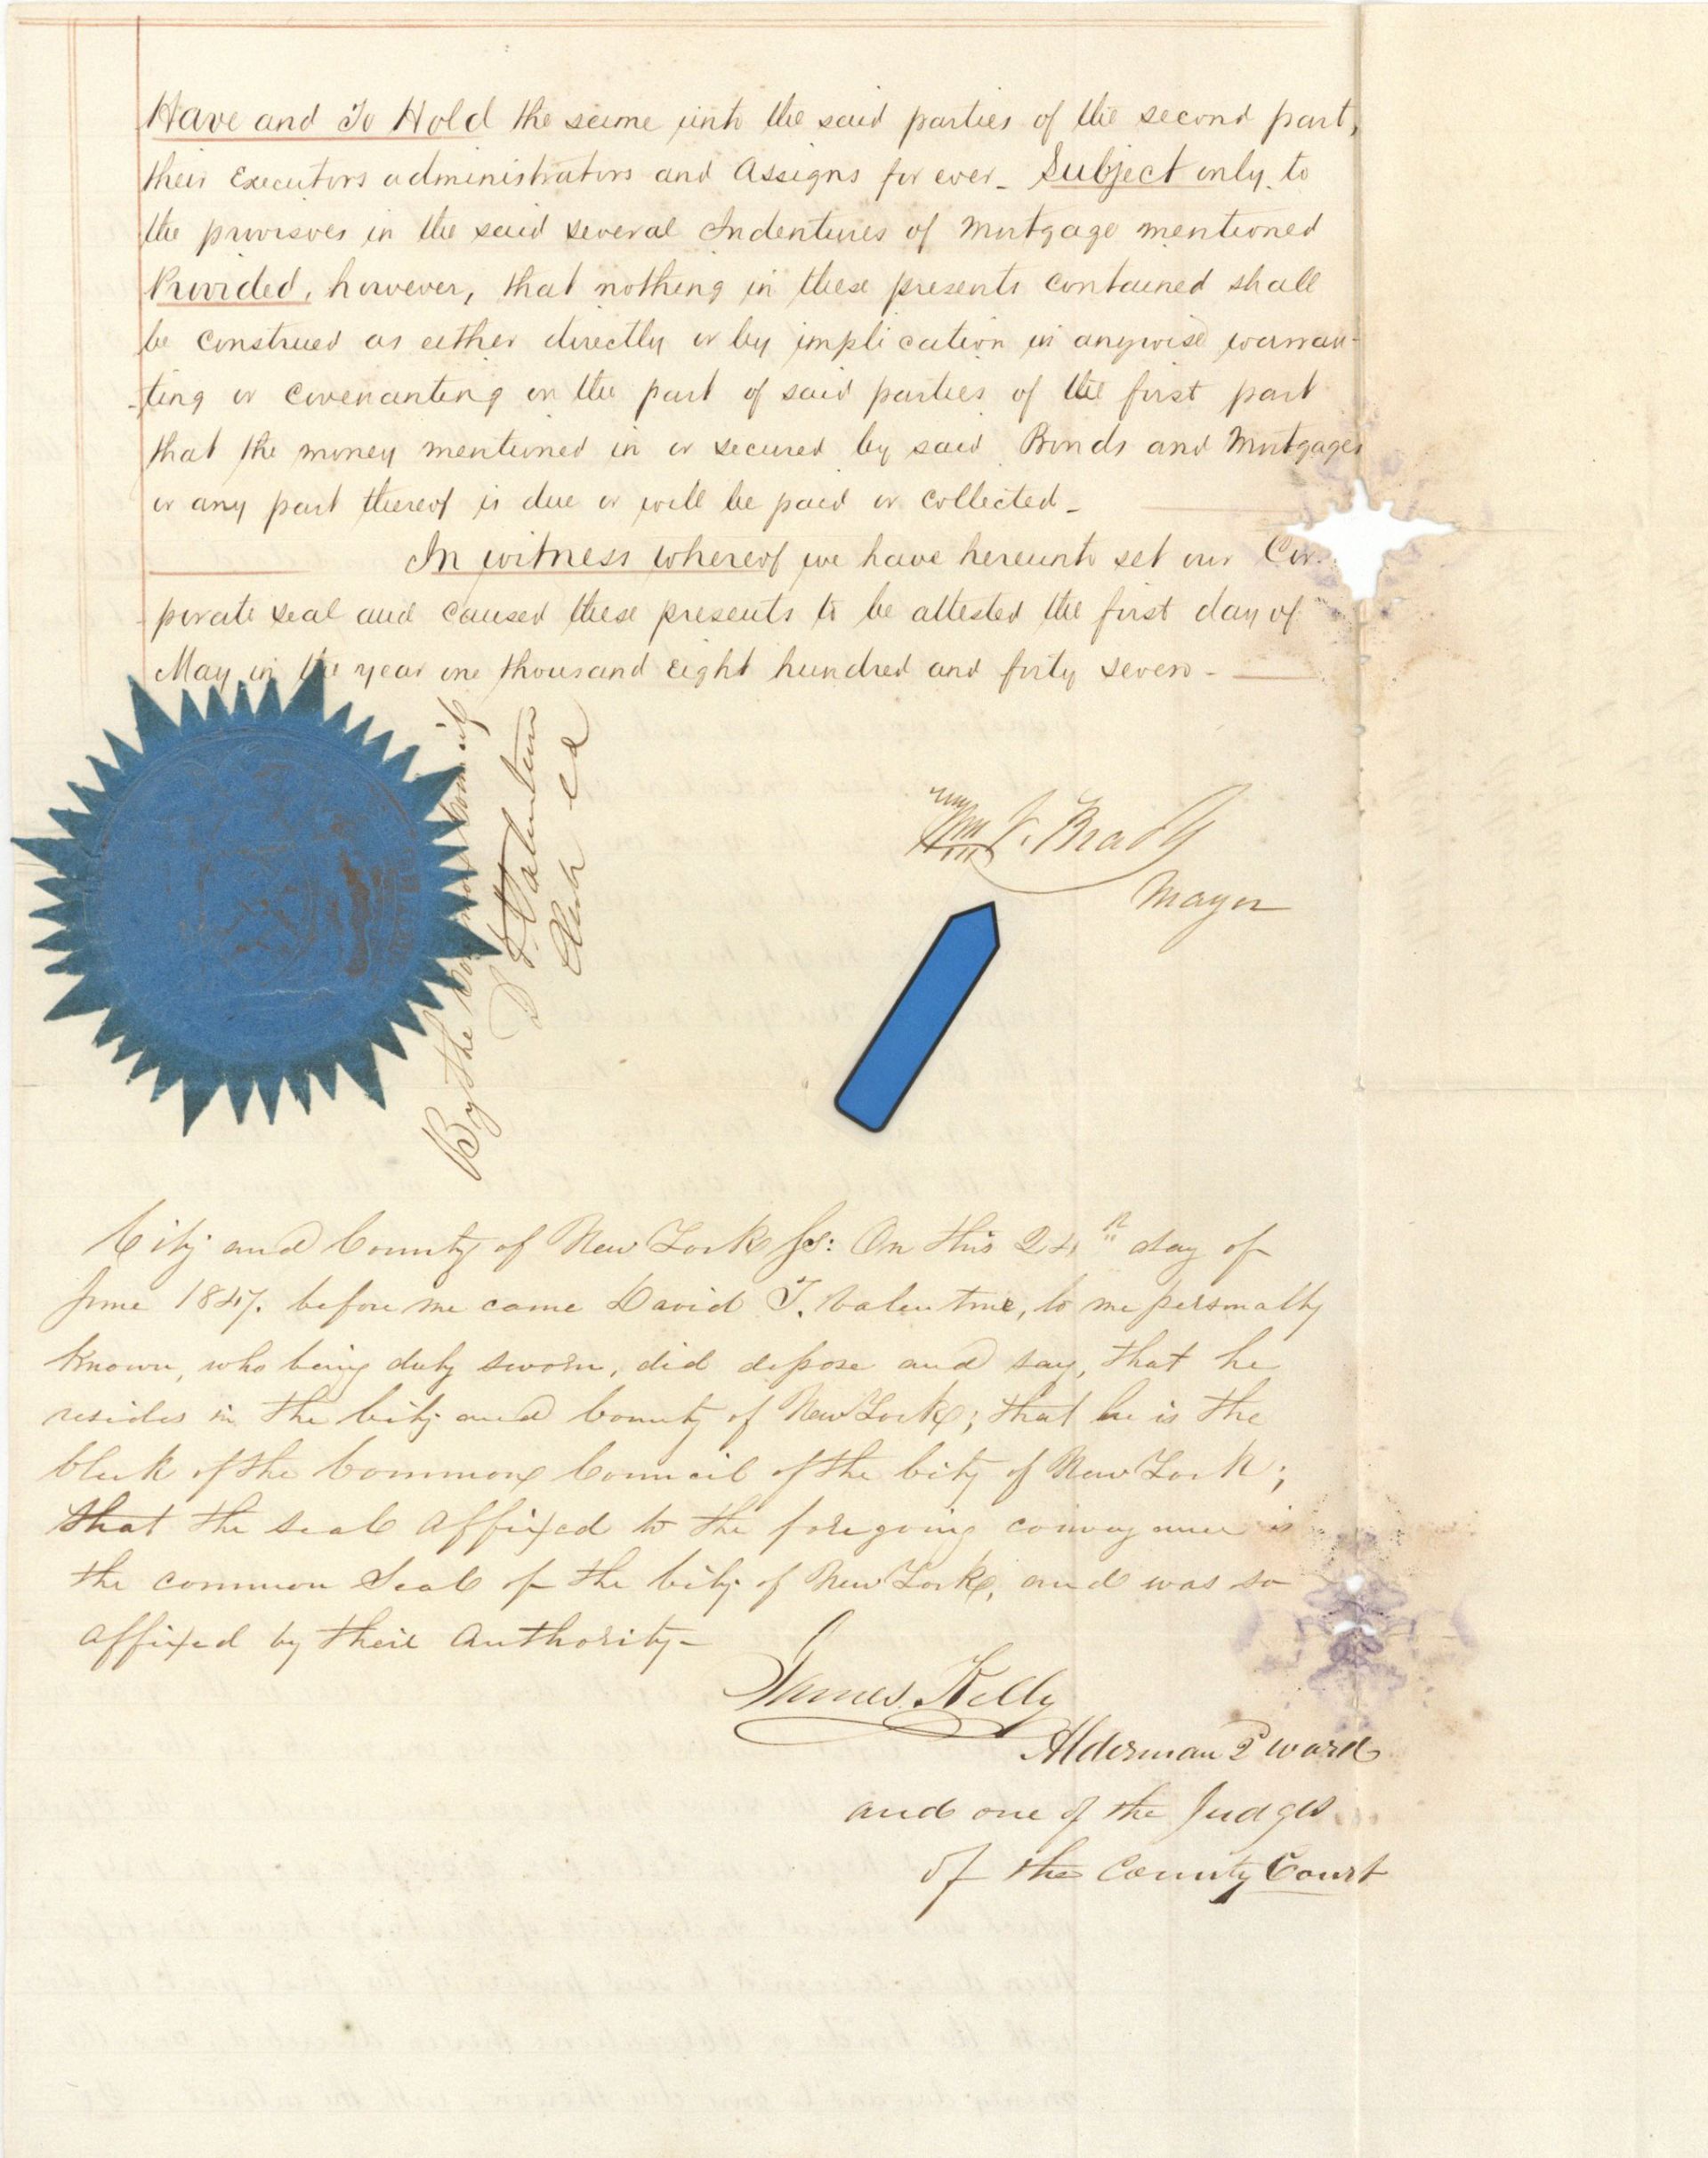 Have and To Hold the same unto the said parties of the second part,
their Executors administrators and Assigns for ever_ Subject only to
the provisoes in the said several Indentures of Mortgage mentioned
Provided, however, that nothing in these presents contained shall
be construed as either directly or by implication in anywise warran-
-ting or covenanting on the part of said parties of the first part
that the money mentioned in or secured by said Bonds and Mortgages
or any part thereof is due or will be paid or collected_
In witness whereof we have hereunto set our Cor-
porate seal and caused these presents to be attested the first day of
May in the year one thousand eight hundred and forty seven -
By the Common Council
D T Valentine
Clerk C C
Wm V. Brady
Mayor
City and County of New York Ss: On this 24th day of
June 1847. before me came David T. Valentine, to me personally
known, who being duly sworn, did depose and say, that he
resides in the City and County of New York; that he is the
Clerk of the Common Council of the City of New York;
that the seal affixed to the foregoing conveyance is
the common Seal of the City of New York, and was so
affixed by their authority-
James Kelly
Alderman 2 ward
and one of the Judges
of the County Court